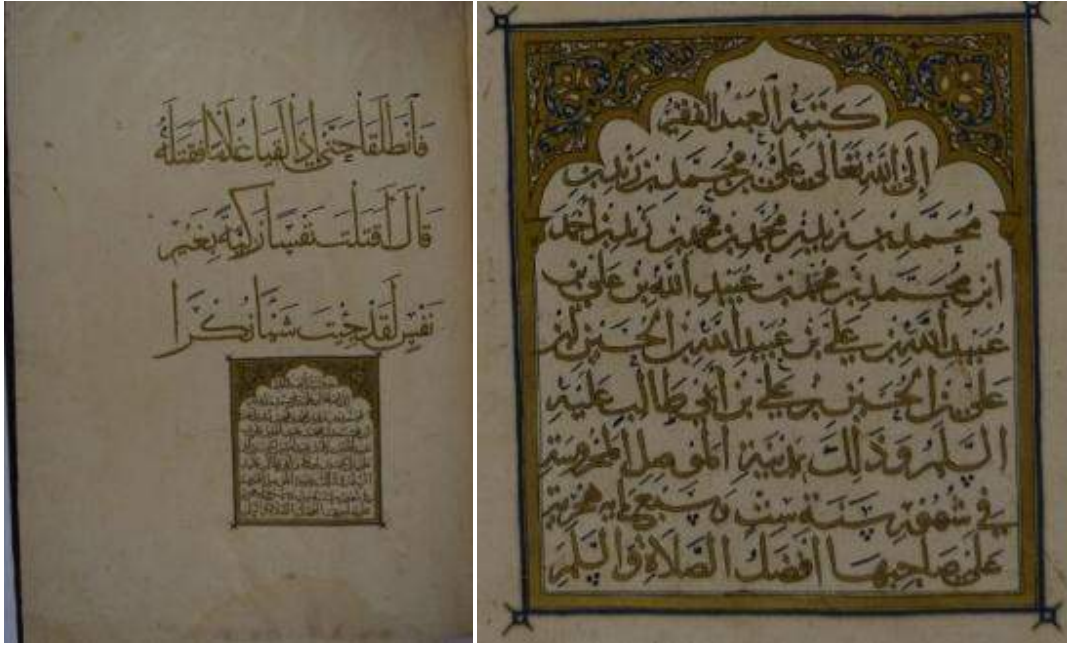 فَانطَلَقَا حَتَّىٰ إِذَا لَقِيَا غُلَامًا فَقَتَلَهُ
قَالَ أَقَتَلْتَ نَفْسًا زَكِيَّةً بِغَيْرِ
نَفْسٍ لَقَدْ جِئْتَ شَيْئًا نُكْرًا
كتبه العبد الفقير
إلى الله تعالى علي بن محمد بن زيد بن
محمد بن زيد بن محمد بن محمد بن زيد بن أحمد
ابن محمد بن محمد بن عبيد الله بن علي بن
عبيد الله بن علي بن عبيد الله بن الحسين بن
علي بن الحسين بن علي بن أبي طالب عليه
السلم وذلك بمدينة الموصل المحروسة
في شهور سنة ست وسبع مايه هجرية
على صاحبها أفضل الصلاة والسلم